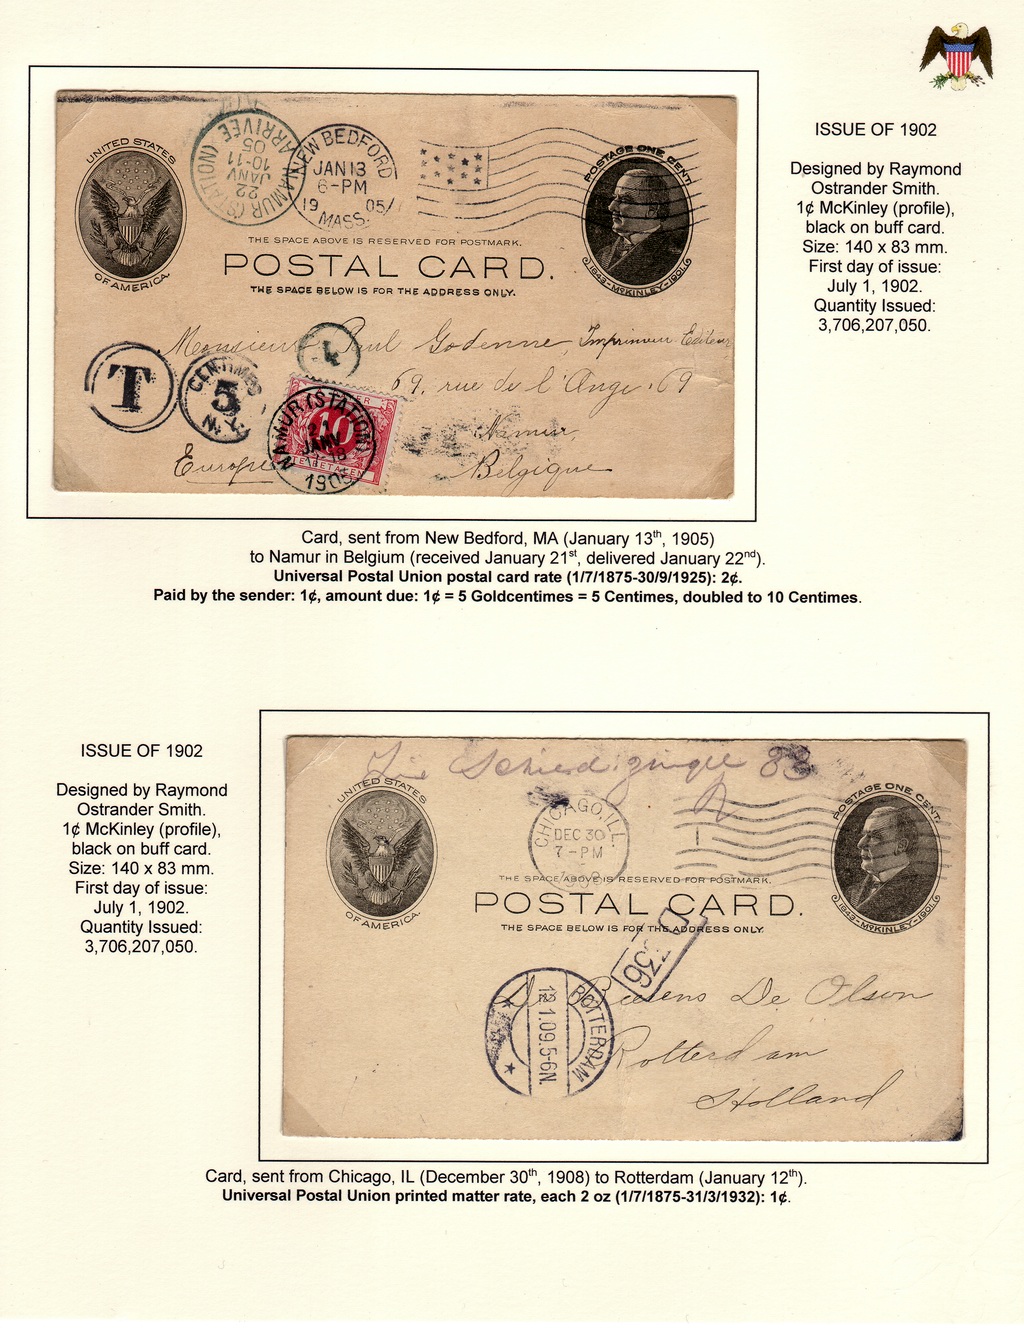 ISSUE OF 1902
Designed by Raymond
Ostrander Smith.
1¢ McKinley (profile),
black on buff card.
Size: 140 x 83 mm.
First day of issue:
July 1, 1902.
Quantity Issued:
3,706,207,050.
UNITED STATES
OF AMERICA.
NAMUR (STATION)
ARRIVÉE
22
JANV
10-11
05
NEW BEDFORD
JAN 13
6-PM
19 05
MASS.
POSTAGE ONE CENT.
1843-McKINLEY-1901.
THE SPACE ABOVE IS RESERVED FOR POSTMARK.
POSTAL CARD.
THE SPACE BELOW IS FOR THE ADDRESS ONLY.
Monsieur Paul Godenne, Imprimeur Editeur
69, rue de l'Ange, 69
Namur,
Belgique
Europe
T
CENTIMES
5
N.Y.
4
10
NAMUR (STATION)
21
JANV
1905
Card, sent from New Bedford, MA (January 13th, 1905)
to Namur in Belgium (received January 21st, delivered January 22nd).
Universal Postal Union postal card rate (1/7/1875-30/9/1925): 2¢.
Paid by the sender: 1¢, amount due: 1¢ = 5 Goldcentimes = 5 Centimes, doubled to 10 Centimes.
ISSUE OF 1902
Designed by Raymond
Ostrander Smith.
1¢ McKinley (profile),
black on buff card.
Size: 140 x 83 mm.
First day of issue:
July 1, 1902.
Quantity Issued:
3,706,207,050.
83
UNITED STATES
OF AMERICA.
CHICAGO, ILL.
DEC 30
7-PM
POSTAGE ONE CENT.
1843-McKINLEY-1901.
THE SPACE ABOVE IS RESERVED FOR POSTMARK.
POSTAL CARD.
THE SPACE BELOW IS FOR THE ADDRESS ONLY.
236
ROTTERDAM
12.1.09.5-6N.
De Olson
Rotterdam
Holland
Card, sent from Chicago, IL (December 30th, 1908) to Rotterdam (January 12th).
Universal Postal Union printed matter rate, each 2 oz (1/7/1875-31/3/1932): 1¢.